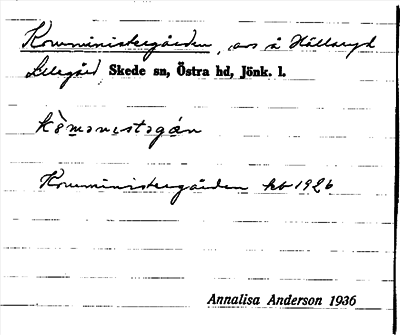 Komministergården, avs å Hällaryd
Lillegård, Skede sn, Östra hd, Jönk. l.
Komministergården kb 1926
Annalisa Anderson 1936